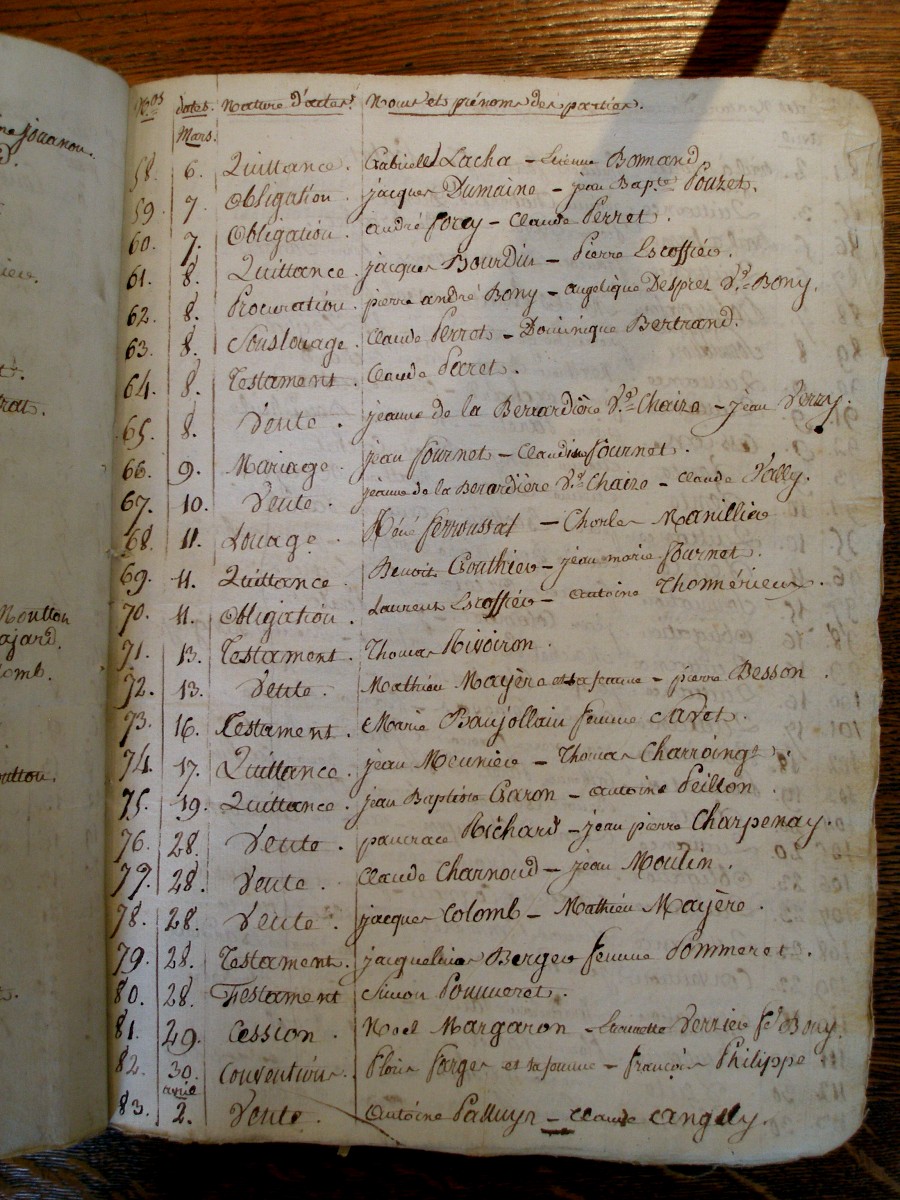 ne jouanon.
N.os dates. Nature d'actes. Noms et prénoms des parties.
Mars.
58. 6. Quittance. Gabriel Lacha - Bonnand
59. 7. Obligation. jacques Dumaine - jean Bapte Pouzet.
60. 7. Obligation. andré forey - Claude Perret.
61. 8. Quittance. jacques Bourdin - Pierre Escoffier.
62. 8. Procuration. pierre andré Bony - angelique Desprez Ve Bony.
63. 8. Souslouage. Claude Perrot - Dominique Bertrand.
64. 8. Testament. Claude Paret.
65. 8. Vente. jeanne de la Berrardière Ve Chaize - jean Verny.
66. 9. Mariage. jean fournet - Claudine fournet.
67. 10. Vente. jeanne de la Berardière Ve Chaize - Claude Vally.
68. 11. Louage. Réné ferroussat - Charles Manillier
69. 11. Quittance. Benoit Gouthier - jean marie fournet.
70. 11. Obligation. Laurent Escoffier - antoine Thonnérieux.
71. 13. Testament. Thomas Rivoiron.
72. 13. Vente. Mathieu Mayère et sa femme - pierre Besson.
73. 16. Testament. Marie Baujollain femme
74. 17. Quittance. jean Meunier - Thomas
75. 19. Quittance. jean Baptiste Caron - antoine Peillon.
76. 28. Vente. pancrace Richard - jean pierre Charpenay.
77. 28. Vente. Claude Charnoud - jean Moulin.
78. 28. Vente. jacques Colomb - Mathieu Mayère.
79. 28. Testament. jacqueline Berger femme Pommeret.
80. 28. Testament Simon Pommeret.
81. 29. Cession. Noel Margaron - Verrier fe Bony.
82. 30. Convention. Floris farges et sa femme - François Philippe
avril
83. 2. Vente. Antoine Palluy - Claude angelly.